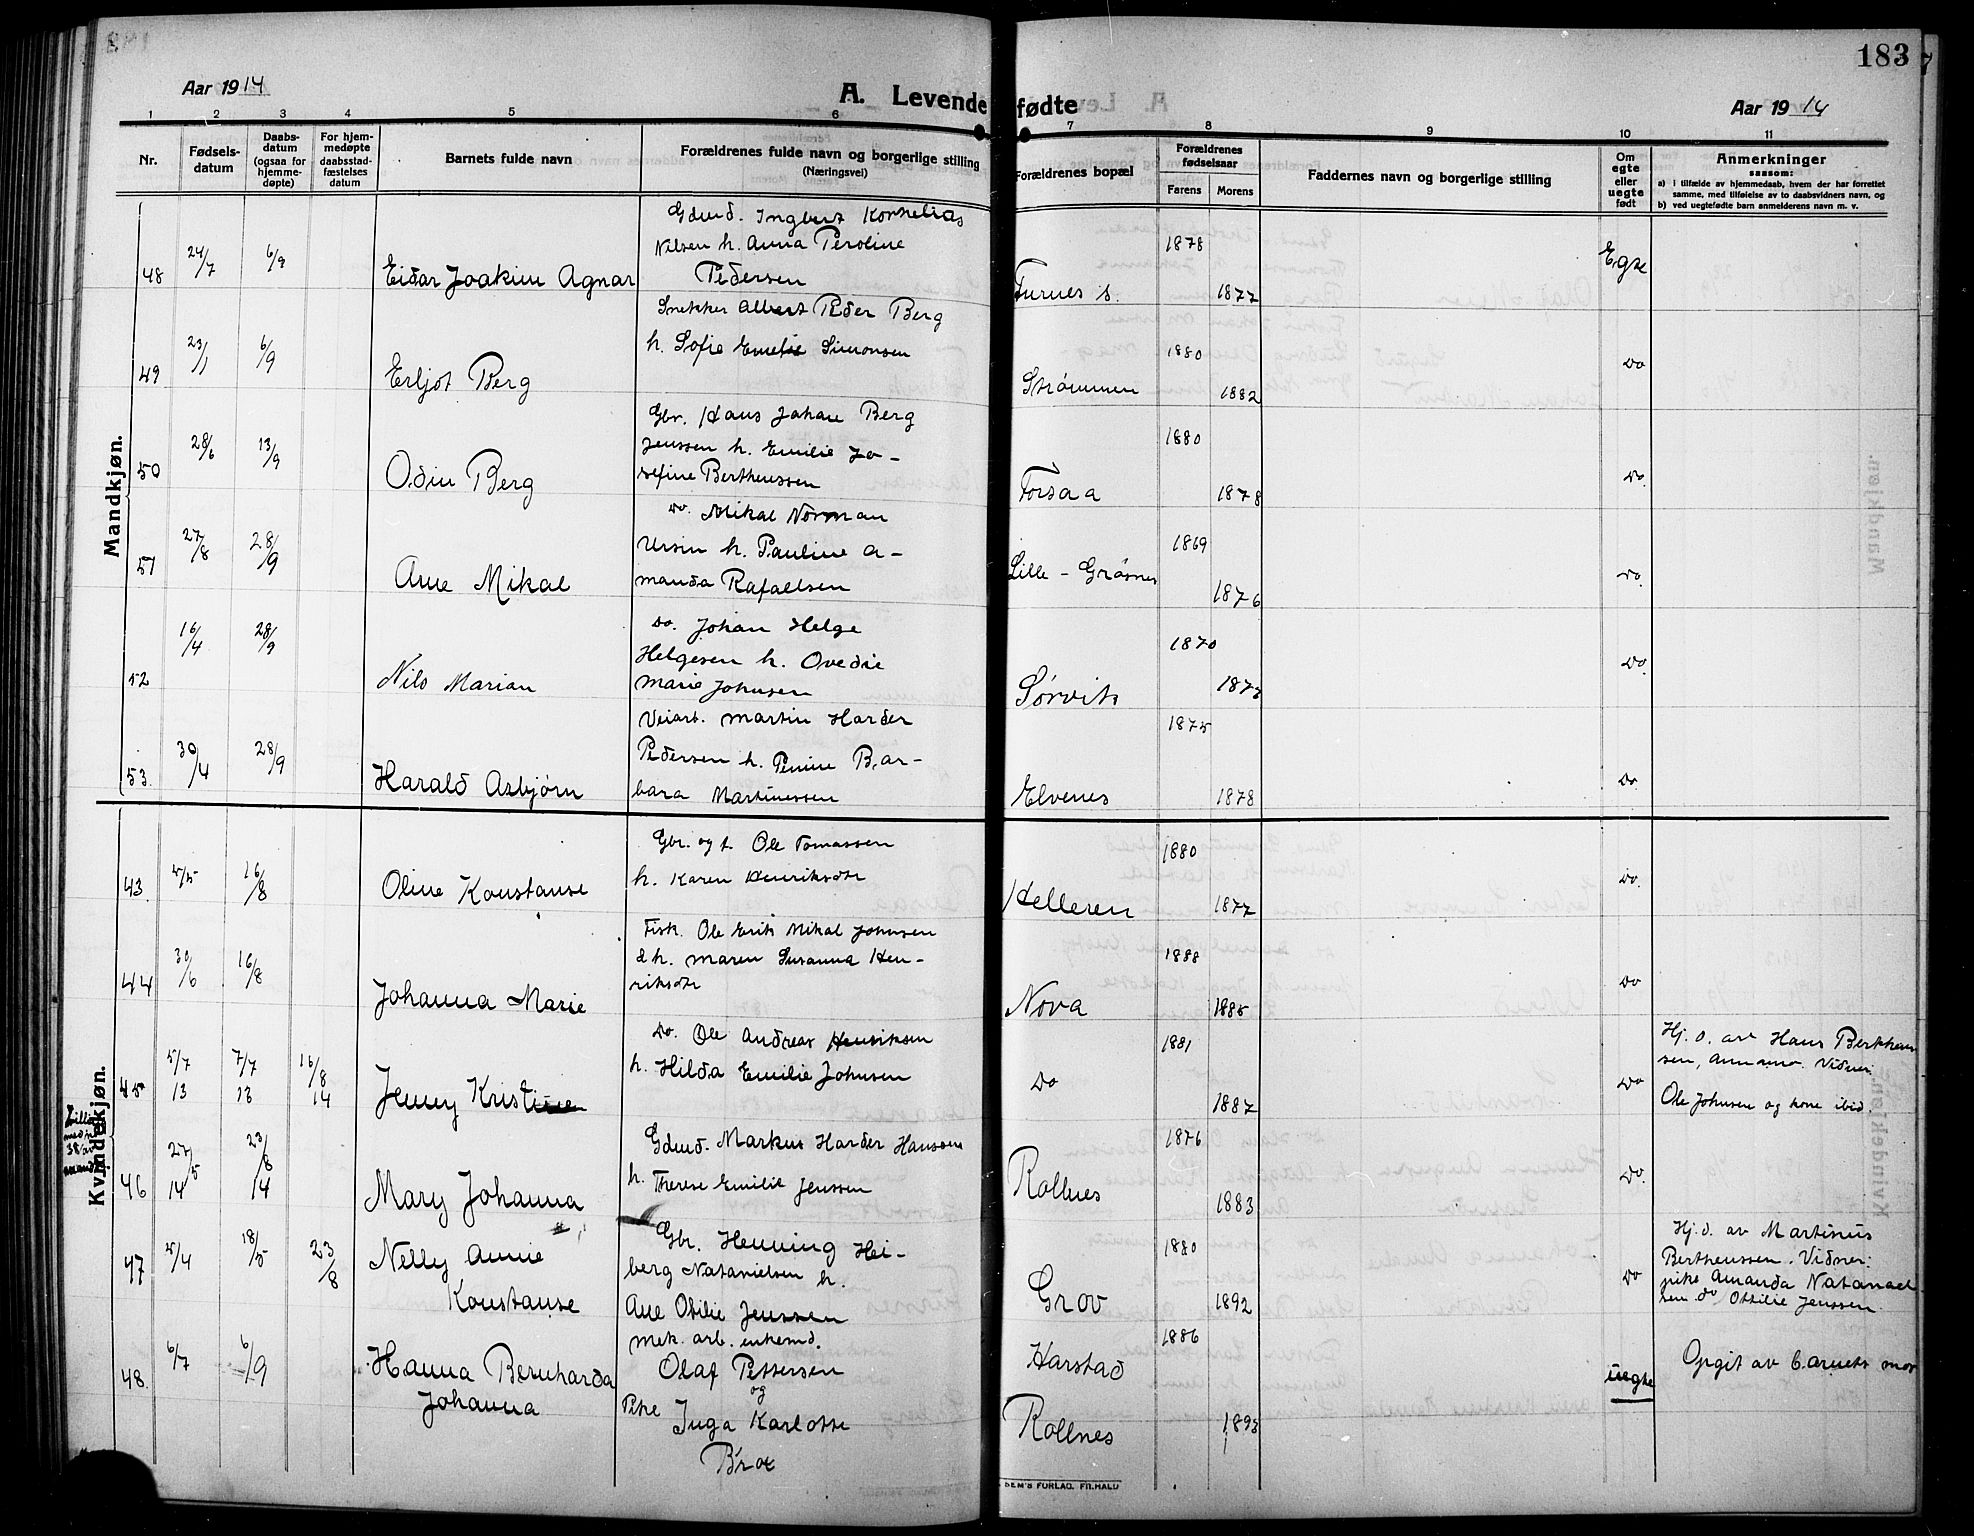 183
Aar 1914
A. Levende fødte
Aar 1914
1 2 3 4 5 6 7 8 9 10 11
Nr.
Fødsels-
datum
Daabs-
datum
(ogsaa for
hjemme-
døpte)
For hjem-
medøpte
daabsstad-
fæstelses
datum
Barnets fulde navn
Forældrenes fulde navn og borgerlige stilling
(Næringsvei)
Forældrenes bopæl
Forældrenes
fødselsaar
Farens Morens
Faddernes navn og borgerlige stilling
Om
egte
eller
uegte
født
Anmerkninger
saasom:
a) i tilfælde av hjemmedaab, hvem der har forrettet
samme, med tilføielse av to daabsvidners navn, og
b) ved uegtefødte barn anmelderens navn m. v.
Mandkjøn.
48 24/7 6/9 Eidar Joakim Agnar
Gdmd. Ingbert Kornelias
Nilsen h. Anna Peroline
Pedersen
Furnes s. 1878 1877 Egte
49 23/1 6/9 Erljot Berg
Snekker Albert Peder Berg
h. Sofie Emelie Simonsen
Strømmen 1880 1882 Do
50 28/6 13/9 Odin Berg
Gbr. Hans Johan Berg
Jenssen h. Emilie Jo-
sefine Bertheussen
Forsaa 1880 1878 Do.
51 27/8 28/9 Arne Mikal
Do. Mikal Norman
Ursin h. Pauline A-
manda Rafaelsen
Lille-Grøsnes 1869 1876 Do.
52 16/4 28/9 Nils Marian
Do. Johan Helge
Helgesen h. Ovedie
Marie Johnsen
Sørvik 1870 1873 Do.
53 30/4 28/9 Harald Asbjørn
Veiarb. Martin Harder
Pedersen h. Penine Bar-
bara Martinessen
Elvenes 1875 1878 Do.
Kvindekjøn.
43 5/5 16/8 Oline Konstanse
Gbr. og f. Ole Tomassen
h. Karen Henriksdtr
Helleren 1880 1877 Do.
44 30/6 16/8 Johanna Marie
Fisk. Ole Erik Mikal Johnsen
& h. Maren Susanna Hen-
riksdtr
Nova 1888 1885 Do
45 5/7 13 7/7 13 16/8 14 Jenny Kristine
Do. Ole Andreas Henriksen
h. Hilda Emilie Johnsen
Do 1881 1887 Do
Hj. d. av Hans Bertheus-
sen, Vidner:
Ole Johnsen og kone ibid.
46 27/5 14 23/8 14 Mary Johanna
Gdmd. Markus Harder Hanssen
h. Therese Emilie Jenssen
Rollnes 1876 1883 Do.
47 5/4 18/5 23/8 Nelly Annie
Konstanse
Gbr. Henning Hei-
berg Natanielsen h.
Ane Otilie Jenssen
Grov 1880 1892 Do
Hj. d. av Martinus
Bertheussen. Vidner:
pike Amanda Natanael
sen do Ottilie Jenssen.
48. 6/7 6/9 Hanna Bernharda
Johanna
Mek. arb. enkemd.
Olaf Pettersen
og
Pike Inga Karlotte
Brox
Harstad 1886
Rollnes 1893
uegte
Opgit av barnets mor
SEM'S FORLAG. FR.HALD